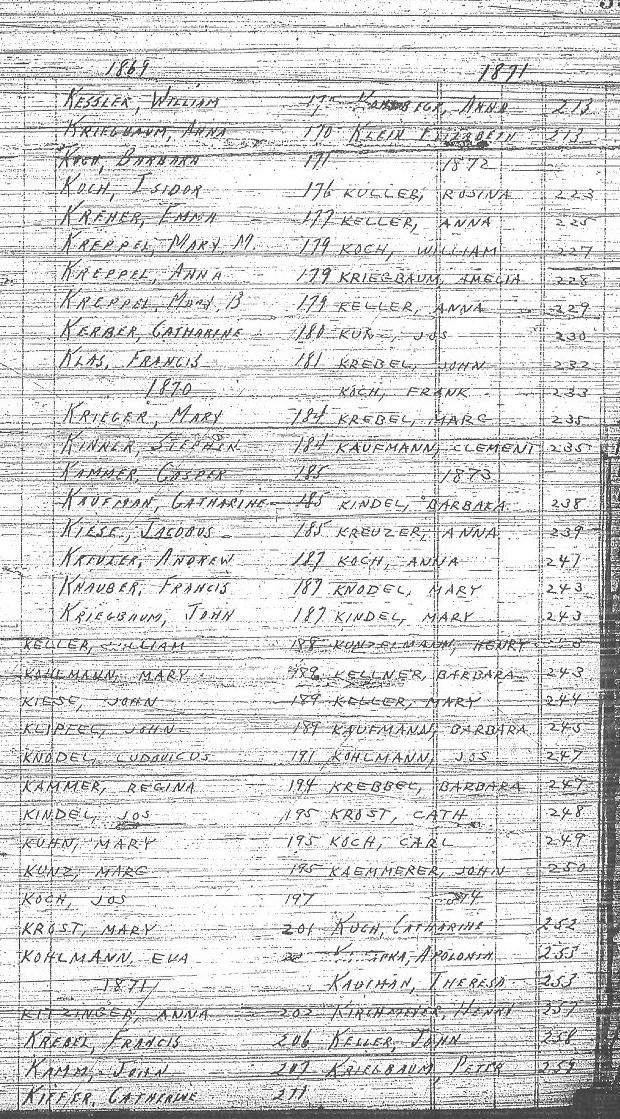 1869
KESSLER, WILLIAM
KRIEGBAUM, ANNA 170
KOCH, BARBARA 171
KOCH, ISIDOR 176
KREHER, EMMA 177
KREPPEL, MARY, M. 179
KREPPEL, ANNA 179
KREPPEL, MARY, B 179
KERBER, CATHARINE 180
KLAS, FRANCIS 181
1870
KRIEGER, MARY 184
KINNER, STEPHEN 184
KAMMER, CASPER 185
KAUFMAN, CATHARINE 185
KIESE, JACOBUS 185
KREUZER, ANDREW 187
KNAUBER, FRANCIS 187
KRIEGBAUM, JOHN 187
KELLER, WILLIAM 188
KOHLMANN, MARY 189
KIESE, JOHN 189
KLIPFEL, JOHN 189
KNODEL, LUDOVICUS 191
KAMMER, REGINA 194
KINDEL, JOS 195
KUHN, MARY 195
KUNZ, MARG 195
KOCH, JOS 197
KROST, MARY 201
KOHLMANN, EVA
1871
KITZINGER, ANNA 202
KREBEL, FRANCIS 206
KAMM, JOHN 207
KIFFER, CATHERINE 211
1871
ANNA 213
KLEIN ELIZABETH 213
1872
KULLER, ROSINA 223
KELLER, ANNA 225
KOCH, WILLIAM 227
KRIEGBAUM, AMELIA 228
KELLER, ANNA 229
KUNZ, JOS 230
KREBEL, JOHN 232
KOCH, FRANK 233
KREBEL, MARG 235
KAUFMANN, CLEMENT 235
1873
KINDEL, BARBARA 238
KREUZER, ANNA 239
KOCH, ANNA 247
KNODEL, MARY 243
KINDEL, MARY 243
KUNZELMANN, HENRY
KELLNER, BARBARA 243
KELLER, MARY 244
KAUFMANN, BARBARA 245
KOHLMANN, JOS 247
KREBBEL, BARBARA 247
KROST, CATH 248
KOCH, CARL 249
KAEMMERER, JOHN 250
KOCH, CATHARINE 252
APOLONIA 255
KAUFMAN, THERESA 253
KIRCHMEYER, HENRY 257
KELLER, JOHN 258
KRIEGBAUM, PETER 259